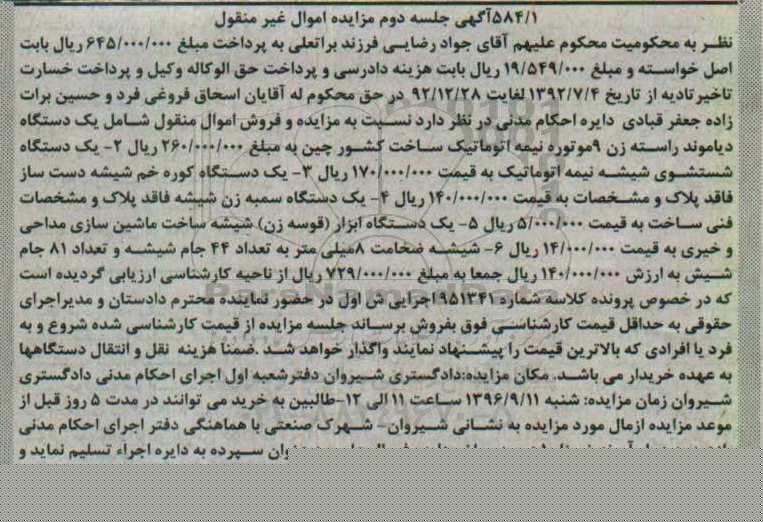 ۵۸۴/۱آگهی جلسه دوم مزایده اموال غیر منقول
نظر به محکومیت محکوم علیهم آقای جواد رضایی فرزند براتعلی به پرداخت مبلغ ۶۴۵/۰۰۰/۰۰۰ ریال بابت
اصل خواسته و مبلغ ۱۹/۵۴۹/۰۰۰ ریال بابت هزینه دادرسی و پرداخت حق الوکاله وکیل و پرداخت خسارت
تاخیرتادیه از تاریخ ۱۳۹۲/۷/۴ لغایت ۹۲/۱۲/۲۸ در حق محکوم له آقایان اسحاق فروغی فرد و حسین برات
زاده جعفر قبادی دایره احکام مدنی در نظر دارد نسبت به مزایده و فروش اموال منقول شامل یک دستگاه
دیاموند راسته زن ۹موتوره نیمه اتوماتیک ساخت کشور چین به مبلغ ۲۶۰/۰۰۰/۰۰۰ ریال ۲- یک دستگاه
شستشوی شیشه نیمه اتوماتیک به قیمت ۱۷۰/۰۰۰/۰۰۰ ریال ۳- یک دستگاه کوره خم شیشه دست ساز
فاقد پلاک و مشخصات به قیمت ۱۴۰/۰۰۰/۰۰۰ ریال ۴- یک دستگاه سمبه زن شیشه فاقد پلاک و مشخصات
فنی ساخت به قیمت ۵/۰۰۰/۰۰۰ ریال ۵- یک دستگاه ابزار (قوسه زن) شیشه ساخت ماشین سازی مداحی
و خیری به قیمت ۱۴/۰۰۰/۰۰۰ ریال ۶- شیشه ضخامت ۸میلی متر به تعداد ۴۴ جام شیشه و تعداد ۸۱ جام
شیش به ارزش ۱۴۰/۰۰۰/۰۰۰ ریال جمعا به مبلغ ۷۲۹/۰۰۰/۰۰۰ ریال از ناحیه کارشناسی ارزیابی گردیده است
که در خصوص پرونده کلاسه شماره ۹۵۱۳۴۱ اجرایی ش اول در حضور نماینده محترم دادستان و مدیراجرای
حقوقی به حداقل قیمت کارشناسی فوق بفروش برساند جلسه مزایده از قیمت کارشناسی شده شروع و به
فرد یا افرادی که بالاترین قیمت را پیشنهاد نمایند واگذار خواهد شد .ضمنا هزینه نقل و انتقال دستگاهها
به عهده خریدار می باشد. مکان مزایده:دادگستری شیروان دفترشعبه اول اجرای احکام مدنی دادگستری
شیروان زمان مزایده: شنبه ۱۳۹۶/۹/۱۱ ساعت ۱۱ الی ۱۲-طالبین به خرید می توانند در مدت ۵ روز قبل از
موعد مزایده ازمال مورد مزایده به نشانی شیروان- شهرک صنعتی با هماهنگی دفتر اجرای احکام مدنی
سپرده به دایره اجراء تسلیم نماید و